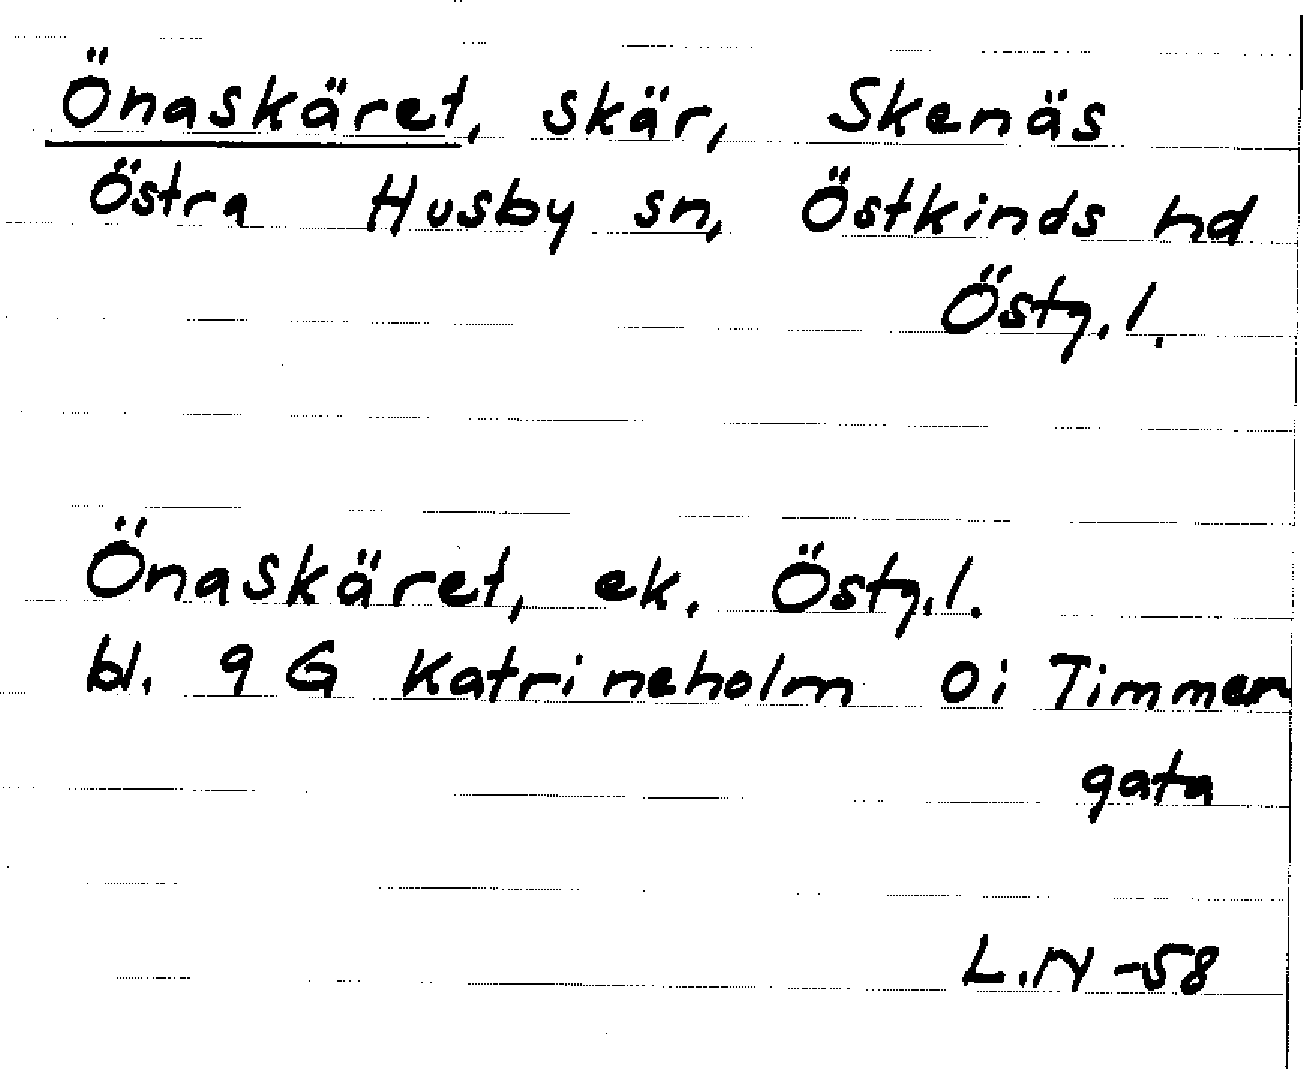 Önaskäret, skär, Skenäs
Östra Husby sn, Östkinds hd
Östg.l.
Önaskäret, ek. Östg.l.
bl. 9 G Katrineholm 0i Timmer
gata
L.N -58